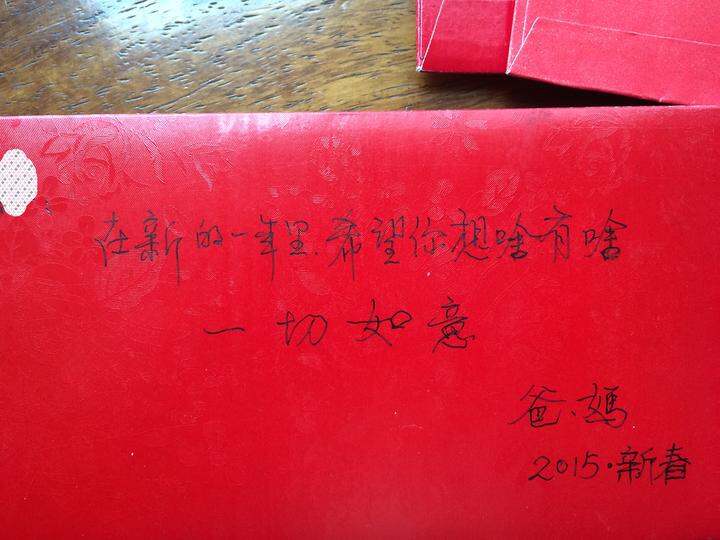 在新的一年里.希望你想啥有啥
一切如意
爸、妈
2015·新春